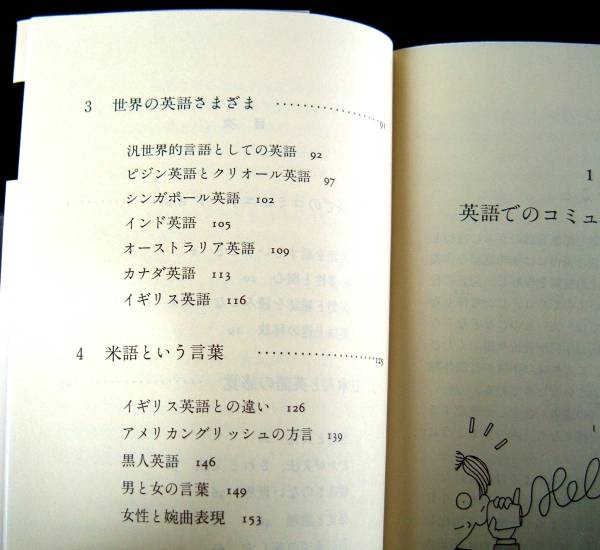 3 世界の英語さまざま ………………91
汎世界的言語としての英語 92
ピジン英語とクリオール英語 97
シンガポール英語 102
インド英語 105
オーストラリア英語 109
カナダ英語 113
イギリス英語 116
4 米語という言葉 ………………125
イギリス英語との違い 126
アメリカングリッシュの方言 139
黒人英語 146
男と女の言葉 149
女性と婉曲表現 153
1
英語でのコミュ
Hel